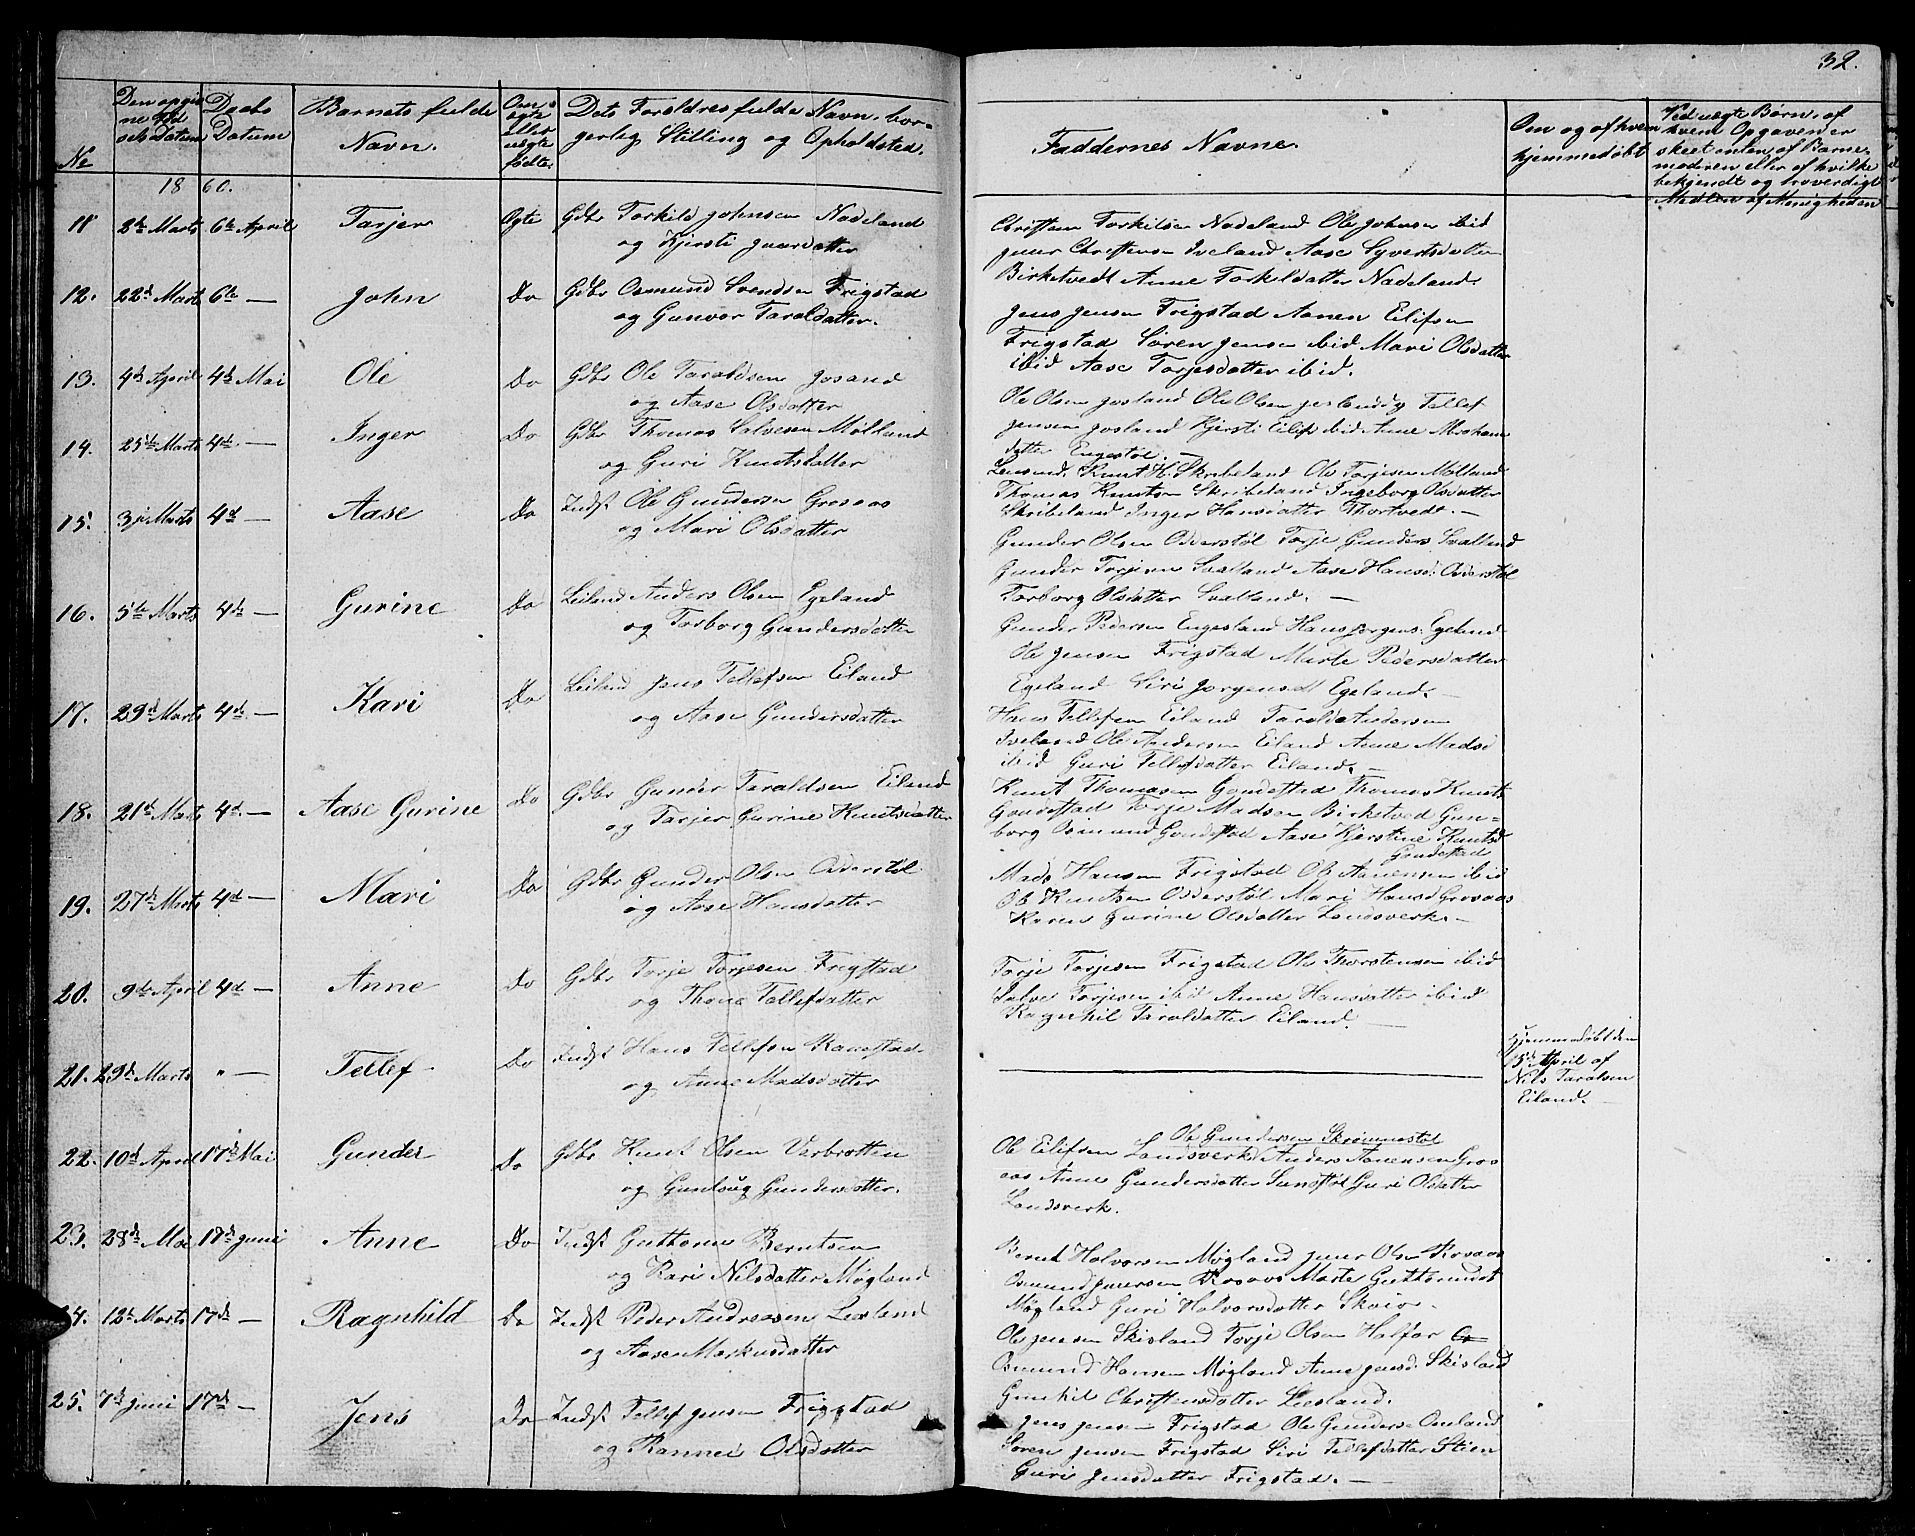 32.
No
Den opgiv
ne Fød
selsDatum
Daabs
Datum
Barnets fulde
Navn.
Om
ægte
eller
uægte
fødte.
Dets Forældres fulde Navn, bor-
gerlig Stilling og Opholdsted.
Faddernes Navne.
Om og af hvem
hjemmedøbt
Ved uægte Børn, af
hvem Opgaven er
skeet enten af Barne-
moderen eller af hvilke
bekjendt og troværdigt
Medlem af Menigheden
1860.
11 2de Marts 6te April Tarjer Ægte Gdbr Torkild Johnsen Nadeland
og Kjersti Juursdatter
Christen Torkilsen Nadeland Ole Johnsen ibid
Juur Christensen Iveland Aase Syvertsdatter
Birketvedt Anne Torkildatter Nadeland.
12. 22d Marts 6te — John Do Gdbr Osmund Svendsen Frigstad
og Gunvor Taraldatter.
Jens Jensen Frigstad Aanen Eilifsen
Frigstad Søren Jensen ibid Mari Olsdatter
ibid Aase Torjesdatter ibid.
13. 4de April 4de Mai Ole Do Gdbr Ole Taraldsen Josand
og Aase Olsdatter
Ole Olsen Josland Ole Olsen Tellef
Jensen Josland Kjersti Eilif ibid Anne Abraham
datter Engestøl. —
14. 25de Marts 4de — Inger Do Gdbr Thomas Salvesen Mølland
og Guri Knutsdatter
Lensmd. Knut H. Skribeland Ole Torjesen Mølland
Thomas Knutsen Skribeland Ingeborg Olsdatter
Skribeland Inger Hansdatter Thortvedt. —
15. 3die Marts 4de — Aase Do Indst Ole Gundersen Grosaas
og Mari Olsdatter
Gunder Olsen Odderstøl Torje Gunders Svalland
Gunder Torjesen Svalland Aase Hansd. Odderstøl
Torborg Olsdatter Svalland. —
16. 5te Marts 4de — Gurine Do Leiland Anders Olsen Egeland
og Torborg Gundersdatter
Gunder Pedersen Engesland Hans Jørgens. Egeland
Ole Jensen Frigstad Marte Pedersdatter
Egeland Siri Jørgensdt Egeland. —
17. 29de Marts 4de — Kari Do Leiland Jens Tellefsen Eiland
og Aase Gundersdatter
Hans Tellefsen Eiland Tarald Andersen
Iveland Ole Andersen Eiland Anne Madsd
ibid Guri Tellefsdatter Eiland. —
18. 21de Marts 4de — Aase Gurine Do Gdbr Gunder Taraldsen Eiland
og Tarjer Gurine Knutsdatter
Knut Thomasen Gondestad Thomas Knuts
Gondestad Torje Madsen Birketved Gun-
borg Osmund Gondestad Aase Kjerstine Knutsd
Gondestad
19. 27de Marts 4de — Mari Do Gdbr Gunder Olsen Odderstøl
og Aase Hansdatter
Mads Hansen Frigstad Ole Aanensen ibid
Ole Knutsen Odderstøl Mari Hansd Grosaas
Karen Gurine Olsdatter Landsverk. —
20. 9de April 4de — Anne Do Gdbr Torje Torjesen Frigstad
og Thone Tellefsdatter
Torje Torjesen Frigstad Ole Thorstensen ibid
Salve Torjesen ibid Anne Hansdatter ibid
Ragnhil Taraldatter Eiland. —
21. 29de Marts " — Tellef Do Indst Hans Tellefsen Ramstad
og Anne Madsdatter
Hjemmedøbt den
15de April af
Nils Taralsen
Eiland.
22. 10de April 17de Mai Gunder Do Gdbr Knut Olsen Verbrotten
og Gunloug Gundersdatter.
Ole Gundersen Skrømmestøl
Ole Eilifsen Landsverk Anders Aanensen Gros
aas Anne Gundersdatter Guri Olsdatter
Landsverk.
23. 28de Mai 17de Juni Anne Do Indst Guttorm Berntsen
og Kari Nilsdatter Møgland
Bernt Halvorsen Møgland Juur Olsen Rosaas
Osmund Juursen Rosaas Marte Guttormdat
Møgland Guri Halvorsdatter Skaio.
24. 12te Marts 17de — Ragnhild Do Indst Peder Andreasen Leeland
og Aase Markusdatter
Ole Jensen Skisland Torje Olsen Halfar Os=
Osmund Hansen Møgland Anne Jensd. Skisland
Gunhil Christensdatter Leesland.
25. 7de Juni 17de — Jens Do Indst Tellef Jensen Frigstad
og Rannei Olsdatter
Jens Jens — Frigstad Ole Gunders. Omland
Søren Jensen Frigstad Siri Tellefsdatter Stien
Guri Jensdatter Frigstad. —